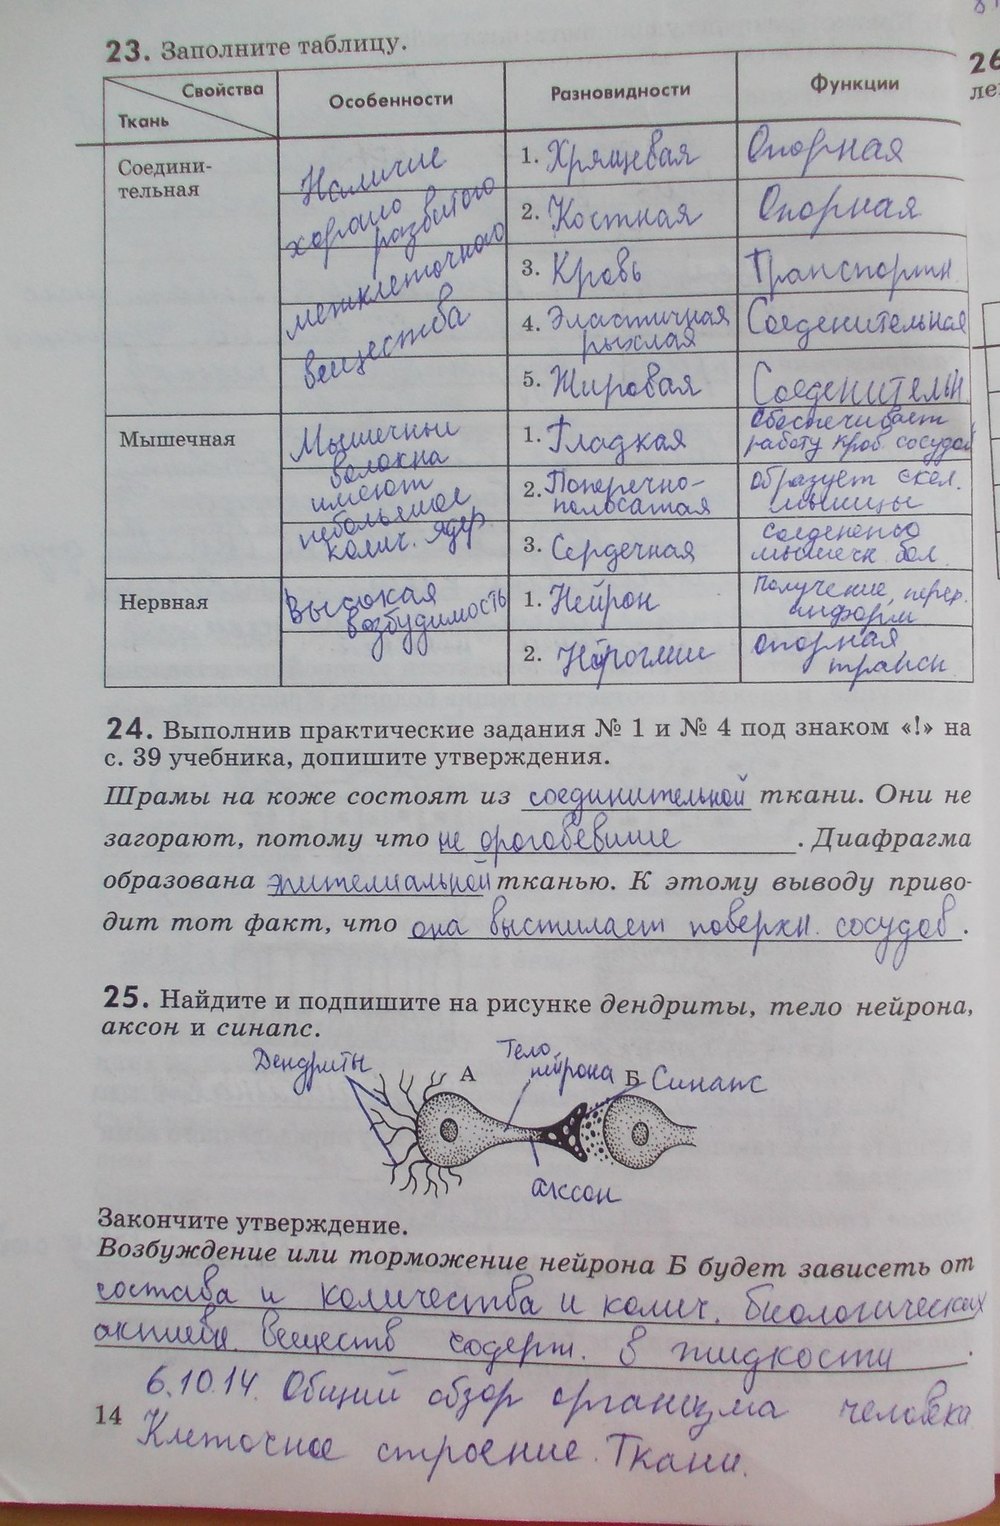 23. Заполните таблицу.
Свойства
Ткань
Особенности
Разновидности
Функции
Соедини-
тельная
Наличие
хорошо
развитого
межклеточного
вещества
1. Хрящевая
Опорная
2. Костная
Опорная
3. Кровь
Транспортн.
4. Эластичная
рыхлая
Соеденительная
5. Жировая
Соеденительн.
Мышечная
Мышечные
волокна
имеют
небольшое
колич. ядер
1. Гладкая
Обеспечивает
работу кров. сосудов
2. Поперечно-
полосатая
образует скел.
мышцы
3. Сердечная
мышечн. вол.
Нервная
Высокая
возбудимость
1. Нейрон
Получение, перер.
информ
2.
опорная,
трансп.
24. Выполнив практические задания № 1 и № 4 под знаком «!» на
с. 39 учебника, допишите утверждения.
Шрамы на коже состоят из соединительной ткани. Они не
загорают, потому что не орогобевшие. Диафрагма
образована эпителиальной тканью. К этому выводу приво-
дит тот факт, что она выстилает поверхн. сосудов.
25. Найдите и подпишите на рисунке дендриты, тело нейрона,
аксон и синапс.
Дендриты
А
Тело
нейрона
Б
Синапс
аксон
Закончите утверждение.
Возбуждение или торможение нейрона Б будет зависеть от
состава и количества и колич. биологических
активн. веществ содерж. в жидкости.
6.10.14. Общий обзор организма человека
14
Клеточное строение. Ткани.
26
ле